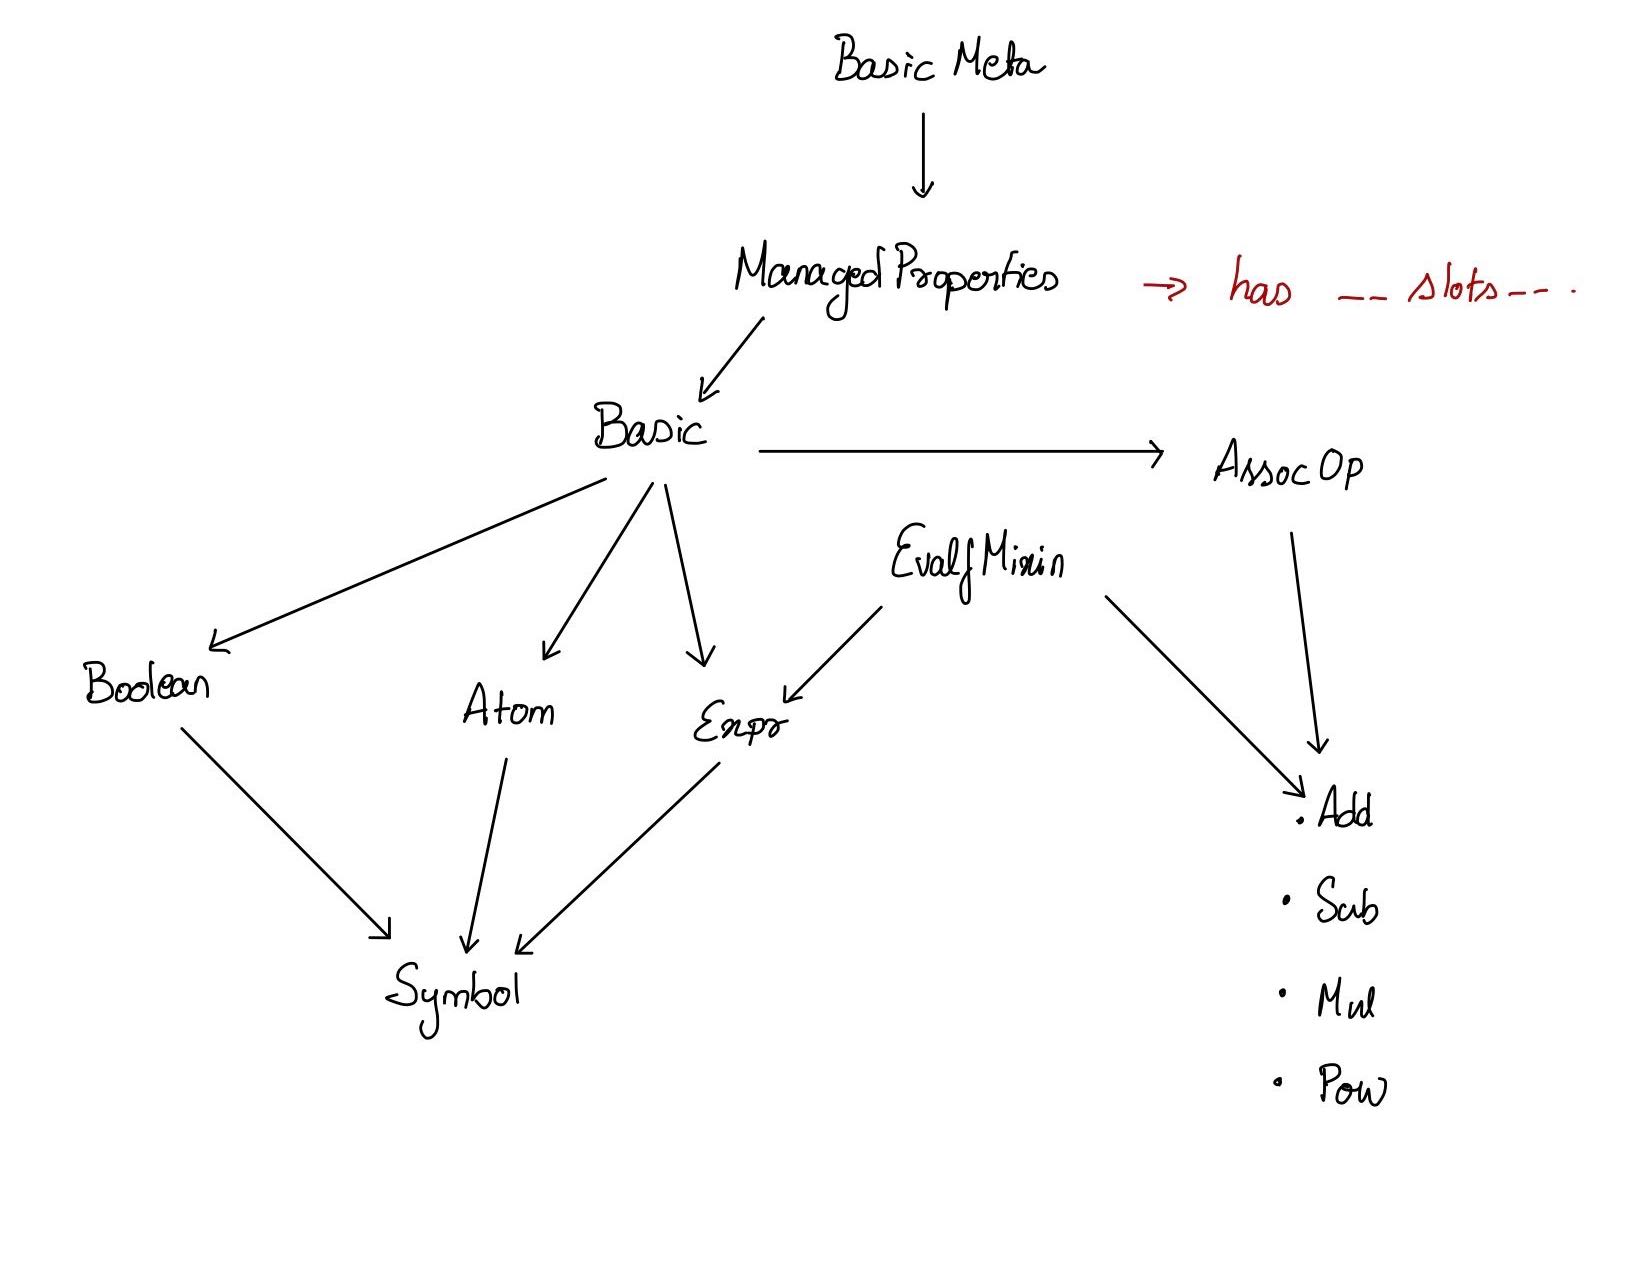 Basic Meta
Managed Properties → has __ slots__.
Basic
AssocOp
EvalfMixin
Boolean
Atom
Expr
Add
Sub
Mul
Pow
Symbol